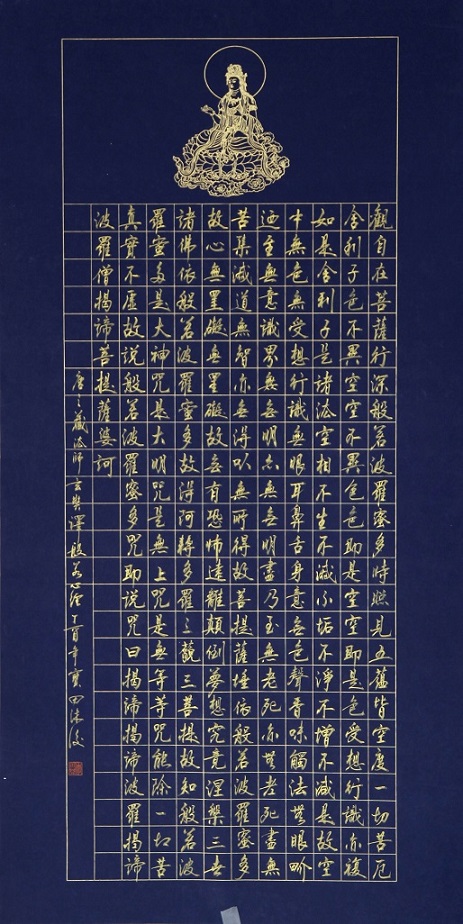 觀自在菩薩行深般若波羅蜜多時照見五蘊皆空度一切苦厄
舍利子色不異空空不異色色即是空空即是色受想行識亦復
如是舍利子是諸法空相不生不滅不垢不淨不增不減是故空
中無色無受想行識無眼耳鼻舌身意無色聲香味觸法無眼界
迺至無意識界無無明亦無無明盡乃至無老死亦無老死盡無
苦集滅道無智亦無得以無所得故菩提薩埵依般若波羅蜜多
故心無罣礙無罣礙故無有恐怖遠離顛倒夢想究竟涅槃三世
諸佛依般若波羅蜜多故得阿耨多羅三藐三菩提故知般若波
羅蜜多是大神咒是大明咒是無上咒是無等等咒能除一切苦
真實不虛故說般若波羅蜜多咒即說咒曰揭諦揭諦波羅揭諦
波羅僧揭諦菩提薩婆訶
唐三藏法師玄奘譯 般若心經 丁酉年